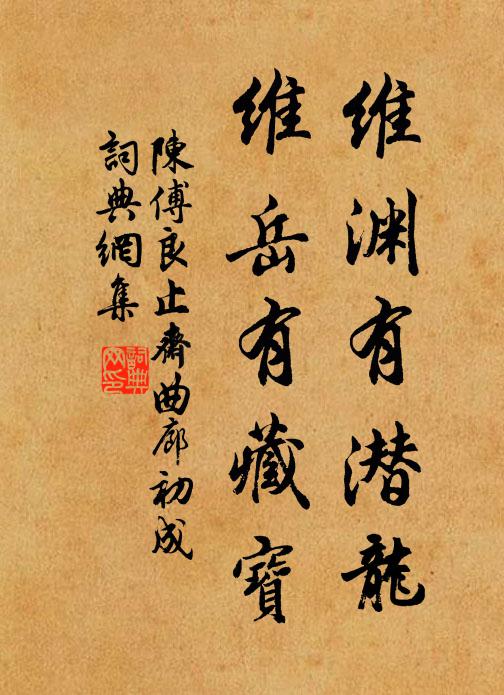 维渊有潜龍
维岳有藏寶
陳傅良止齋曲廊初成
詞典網集
詞典網印